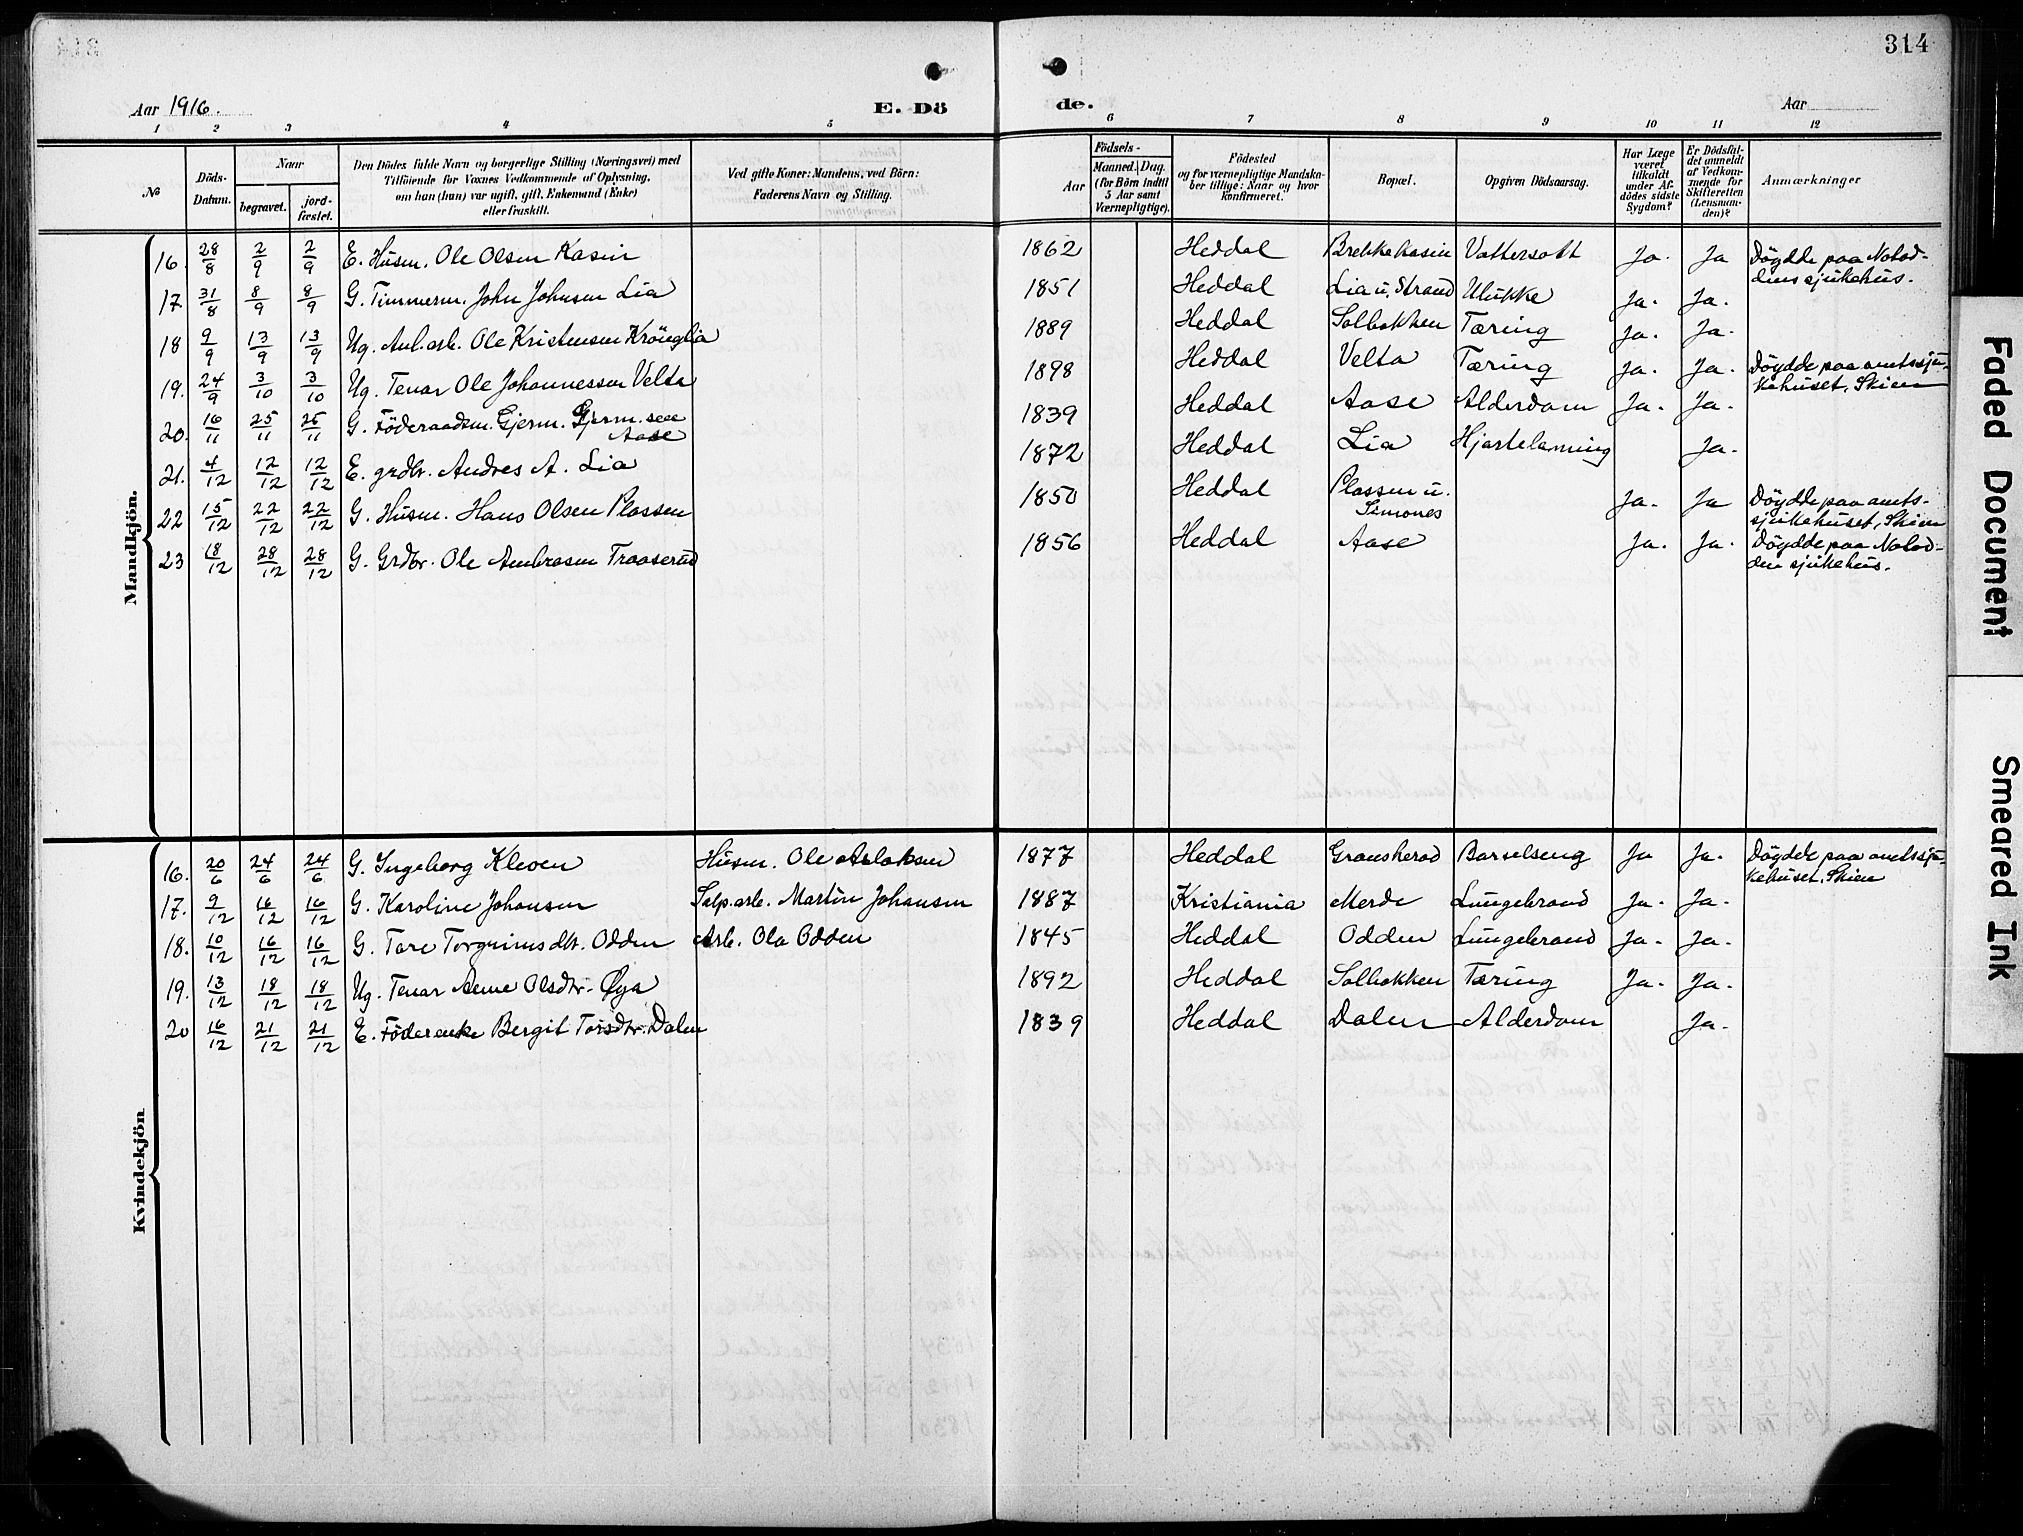 314
Aar 1916. E. Dö de. Aar
1 2 3 4 5 6 7 8 9 10 11 12
№
Döds-
Datum.
Naar
begravet.
jord-
fæstet.
Den Dödes fulde Navn og borgerlige Stilling (Næringsvei) med
Tilföiende for Voxnes Vedkommende af Oplysning,
om han (hun) var ugift, gift, Enkemand (Enke)
eller fraskilt.
Ved gifte Koner: Mandens, ved Börn:
Faderens Navn og Stilling.
Aar
Födsels-
Maaned. Dag.
(for Börn indtil
5 Aar samt
Værnepligtige).
Födested
og for værnepligtige Mandska-
ber tillige: Naar og hvor
konfirmeret.
Bopæl.
Opgiven Dödsaarsag.
Har Læge
været
tilkaldt
under Af-
dödes sidste
Sygdom?
Er Dödsfal-
det anmeldt
af Vedkom-
mende for
Skifteretten
(Lensman-
den)?
Anmærkninger
Mandkjön.
16. 28/8 2/9 2/9 E. Husm. Ole Olsen Kasin 1862 Heddal Brekkekasin Vattersott Ja. Ja Döydde paa Notod-
dens sjukehus.
17. 31/8 8/9 8/9 G. Timmerm. John Johnsen Lia 1851 Heddal Lia u. Strand Ulukke Ja. Ja.
18 9/9 13/9 13/9 Ug. Anl. arb. Ole Kristensen Krönglia 1889 Heddal Solbakken Tæring Ja. Ja.
19. 24/9 3/10 3/10 Ug. Tenar Ole Johannessen Velta 1898 Heddal Velta Tæring Ja. Ja. Döydde paa amtssju-
kehuset, Skien
20. 16/11 25/11 25/11 G. Föderaadsm. Gjerm. Gjerm.sen
Aase 1839 Heddal Aase Alderdom Ja. Ja.
21. 4/12 12/12 12/12 E. grdbr. Andres A. Lia 1872 Heddal Lia Hjartelamning Ja.
22 15/12 22/12 22/12 G. Husm. Hans Olsen Plassen 1850 Heddal Plassen u.
Simones Ja. Ja Döydde paa amts-
sjukehuset, Skien
23 18/12 28/12 28/12 G. Grdbr. Ole Ambrosen Traaserud 1856 Heddal Aase Ja. Ja. Döydde paa Notod-
den sjukehus.
Kvindekjön
16. 20/6 24/6 24/6 G. Ingeborg Kleven Husm. Ole Aslaksen 1877 Heddal Gransherad Barselseng Ja Ja. Döydde paa amtssju-
kehuset, Skien
17. 9/12 16/12 16/12 G. Karoline Johansen Salp.arb. Martin Johansen 1887 Kristiania Merde Lungebrand Ja. Ja.
18. 10/12 16/12 16/12 G. Tore Torgrimsdtr. Odden Arb. Ola Odden 1845 Heddal Odden Lungebrand Ja. Ja.
19. 13/12 18/12 18/12 Ug. Tenar Anne Olsdtr. Øya 1892 Heddal Solbakken Tæring Ja. Ja.
20 16/12 21/12 21/12 E. Föderenke Bergit Torsdtr. Dalen 1839 Heddal Dalen Alderdom Ja.
Faded Document
Smeared Ink